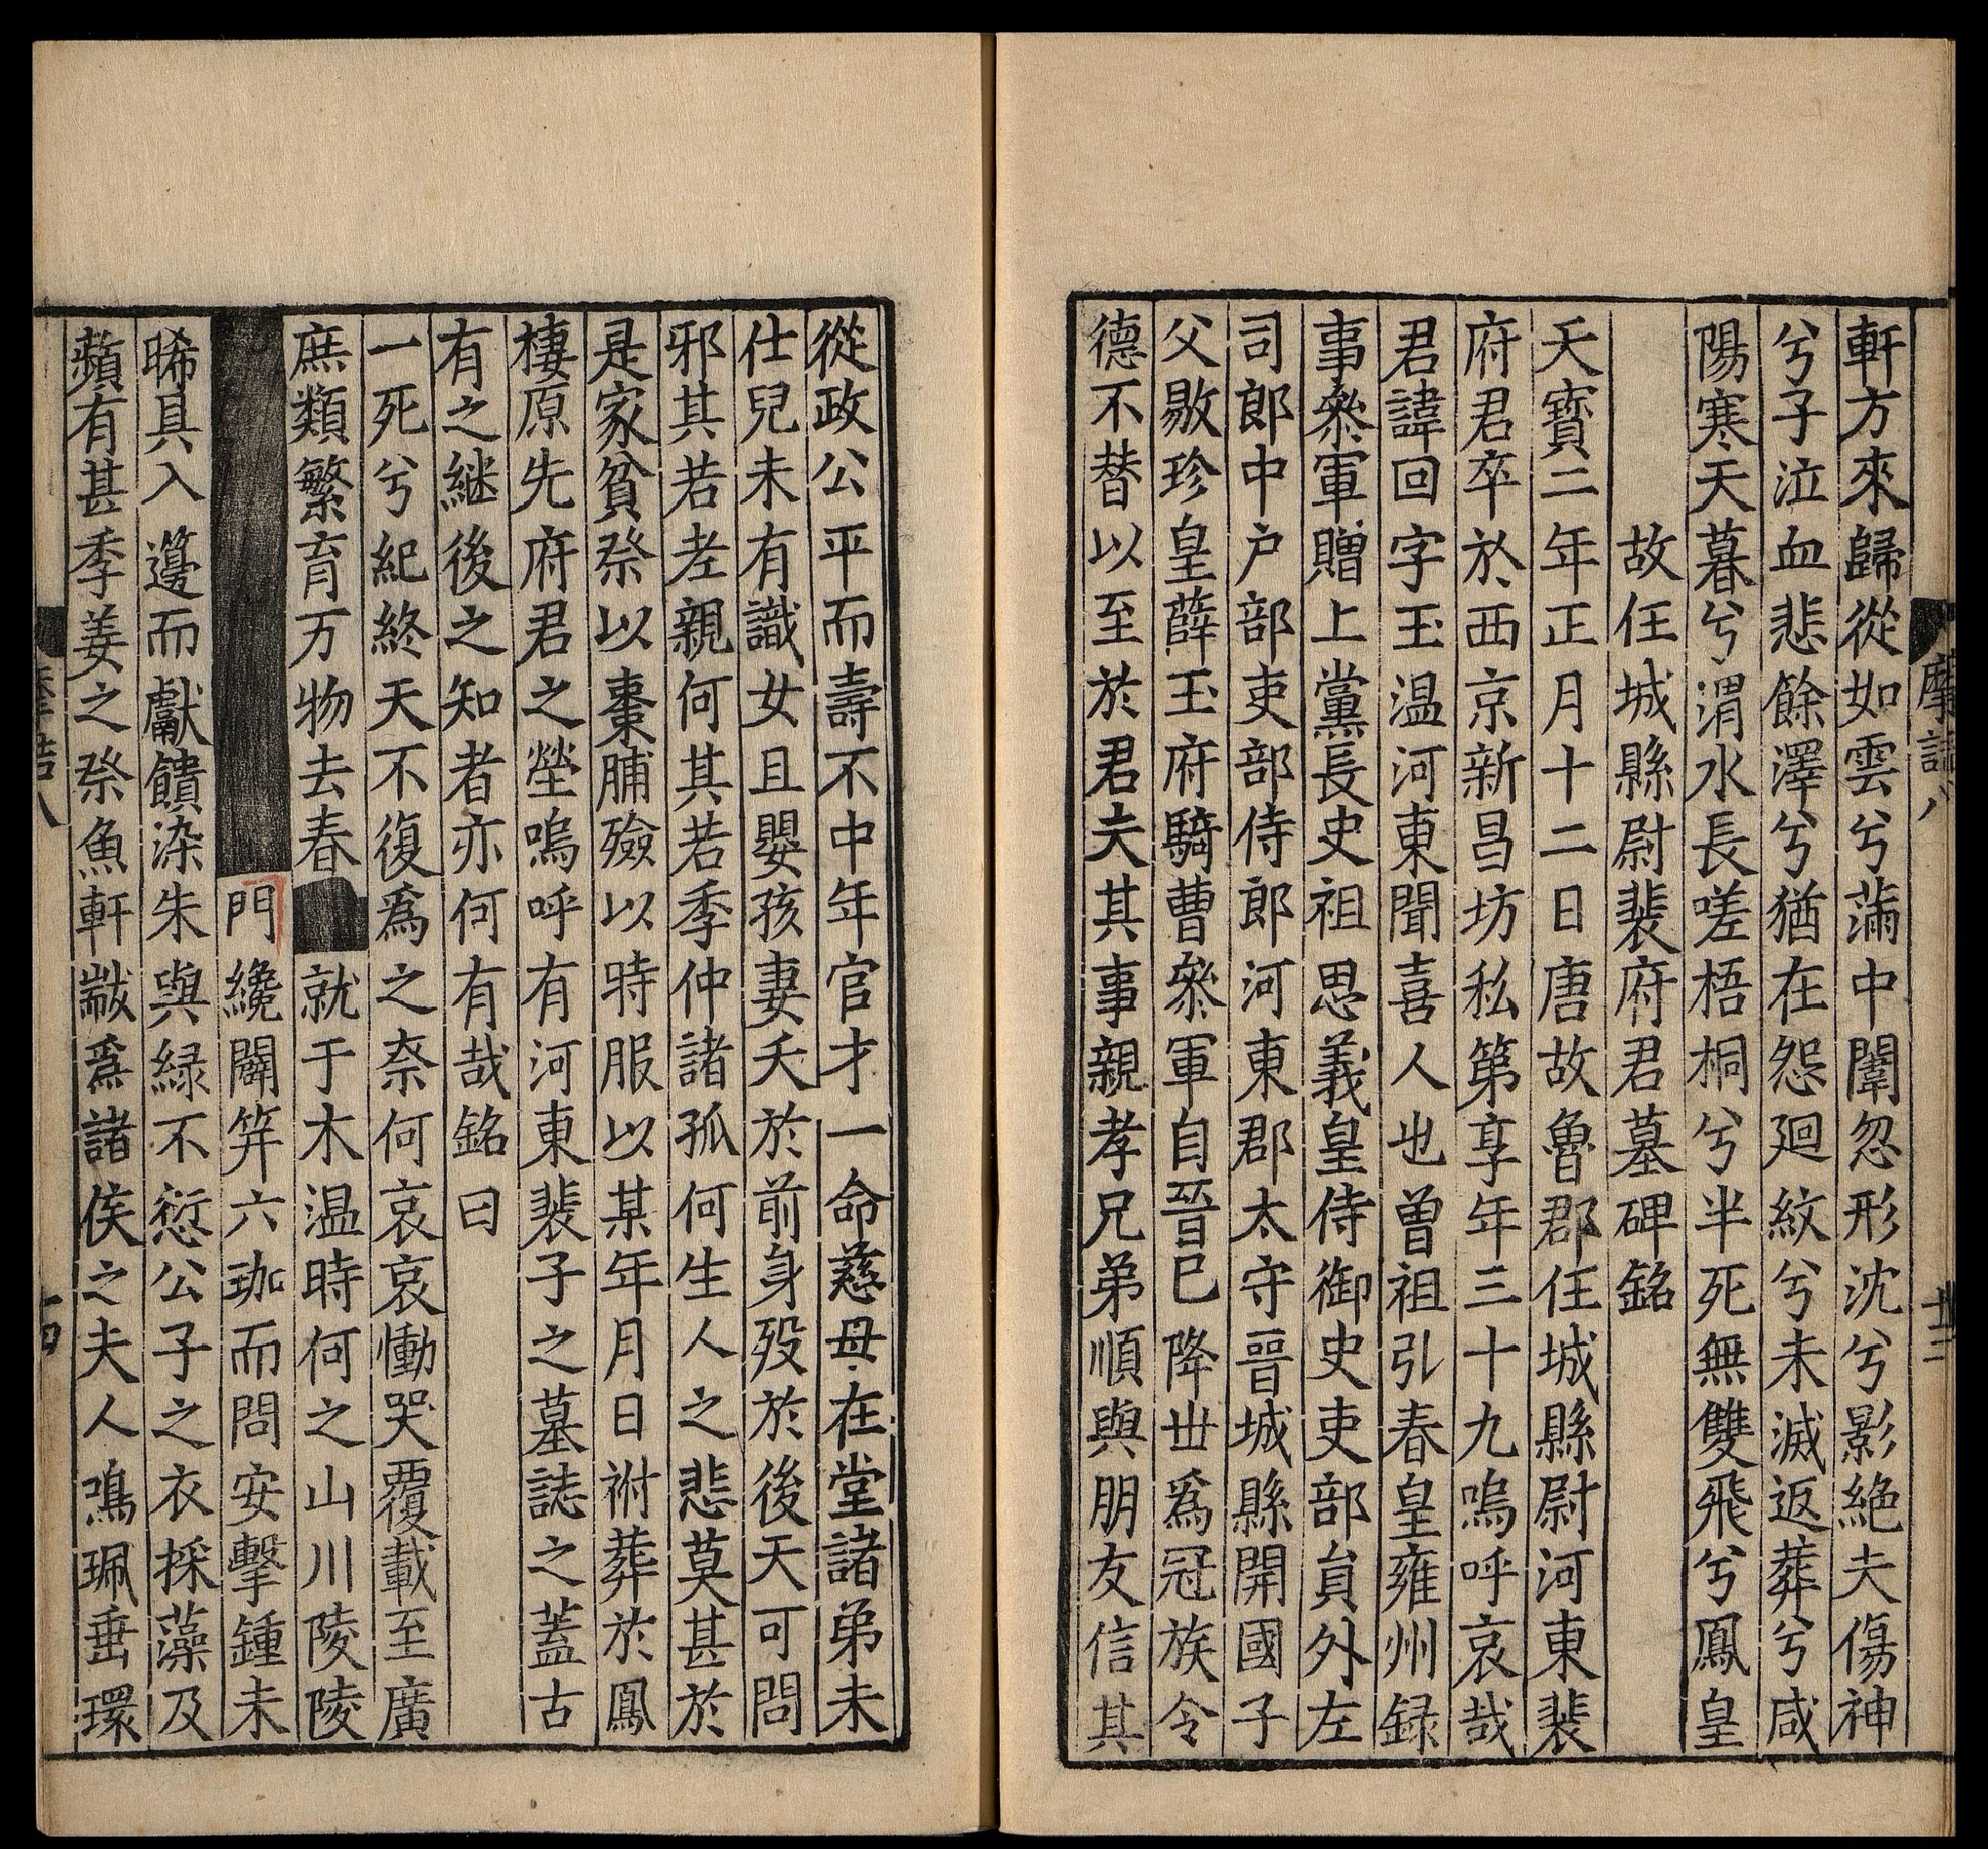 軒方來歸從如雲兮滿中闈忽形沈兮影絶夫傷神
兮子泣血悲餘澤兮猶在怨廻紋兮未滅返葬兮咸
陽寒天暮兮渭水長嗟梧桐兮半死無雙飛兮鳳皇
故任城縣尉裴府君墓碑銘
天寳二年正月十二日唐故魯郡任城縣尉河東裴
府君卒於西京新昌坊私第享年三十九嗚呼哀哉
君諱回字玉温河東聞喜人也曽祖引春皇雍州録
事叅軍贈上黨長史祖思義皇侍御史吏部貟外左
司郎中户部吏部侍郎河東郡太守晉城縣開國子
父敭珍皇薛王府騎曹叅軍自晉已降世爲冠族令
德不替以至於君夫其事親孝兄弟順與朋友信其
從政公平而壽不中年官才一命慈母在堂諸弟未
仕兒未有識女且嬰孩妻夭於前身殁於後天可問
邪其若老親何其若季仲諸孤何生人之悲莫甚於
是家貧祭以棗脯殮以時服以某年月日祔葬於鳳
棲原先府君之塋嗚呼有河東裴子之墓誌之蓋古
有之継後之知者亦何有哉銘曰
一死兮紀終天不復爲之奈何哀哀慟哭覆載至廣
庶類繁育万物去春就于木温時何之山川陵陵
門纔闢笄六珈而問安擊鍾未
晞具入籩而獻饋染朱與緑不愆公子之衣採藻及
蘋有甚季姜之祭魚軒黻爲諸侯之夫人鳴珮垂環
摩詰八
十三
摩詰八
十四